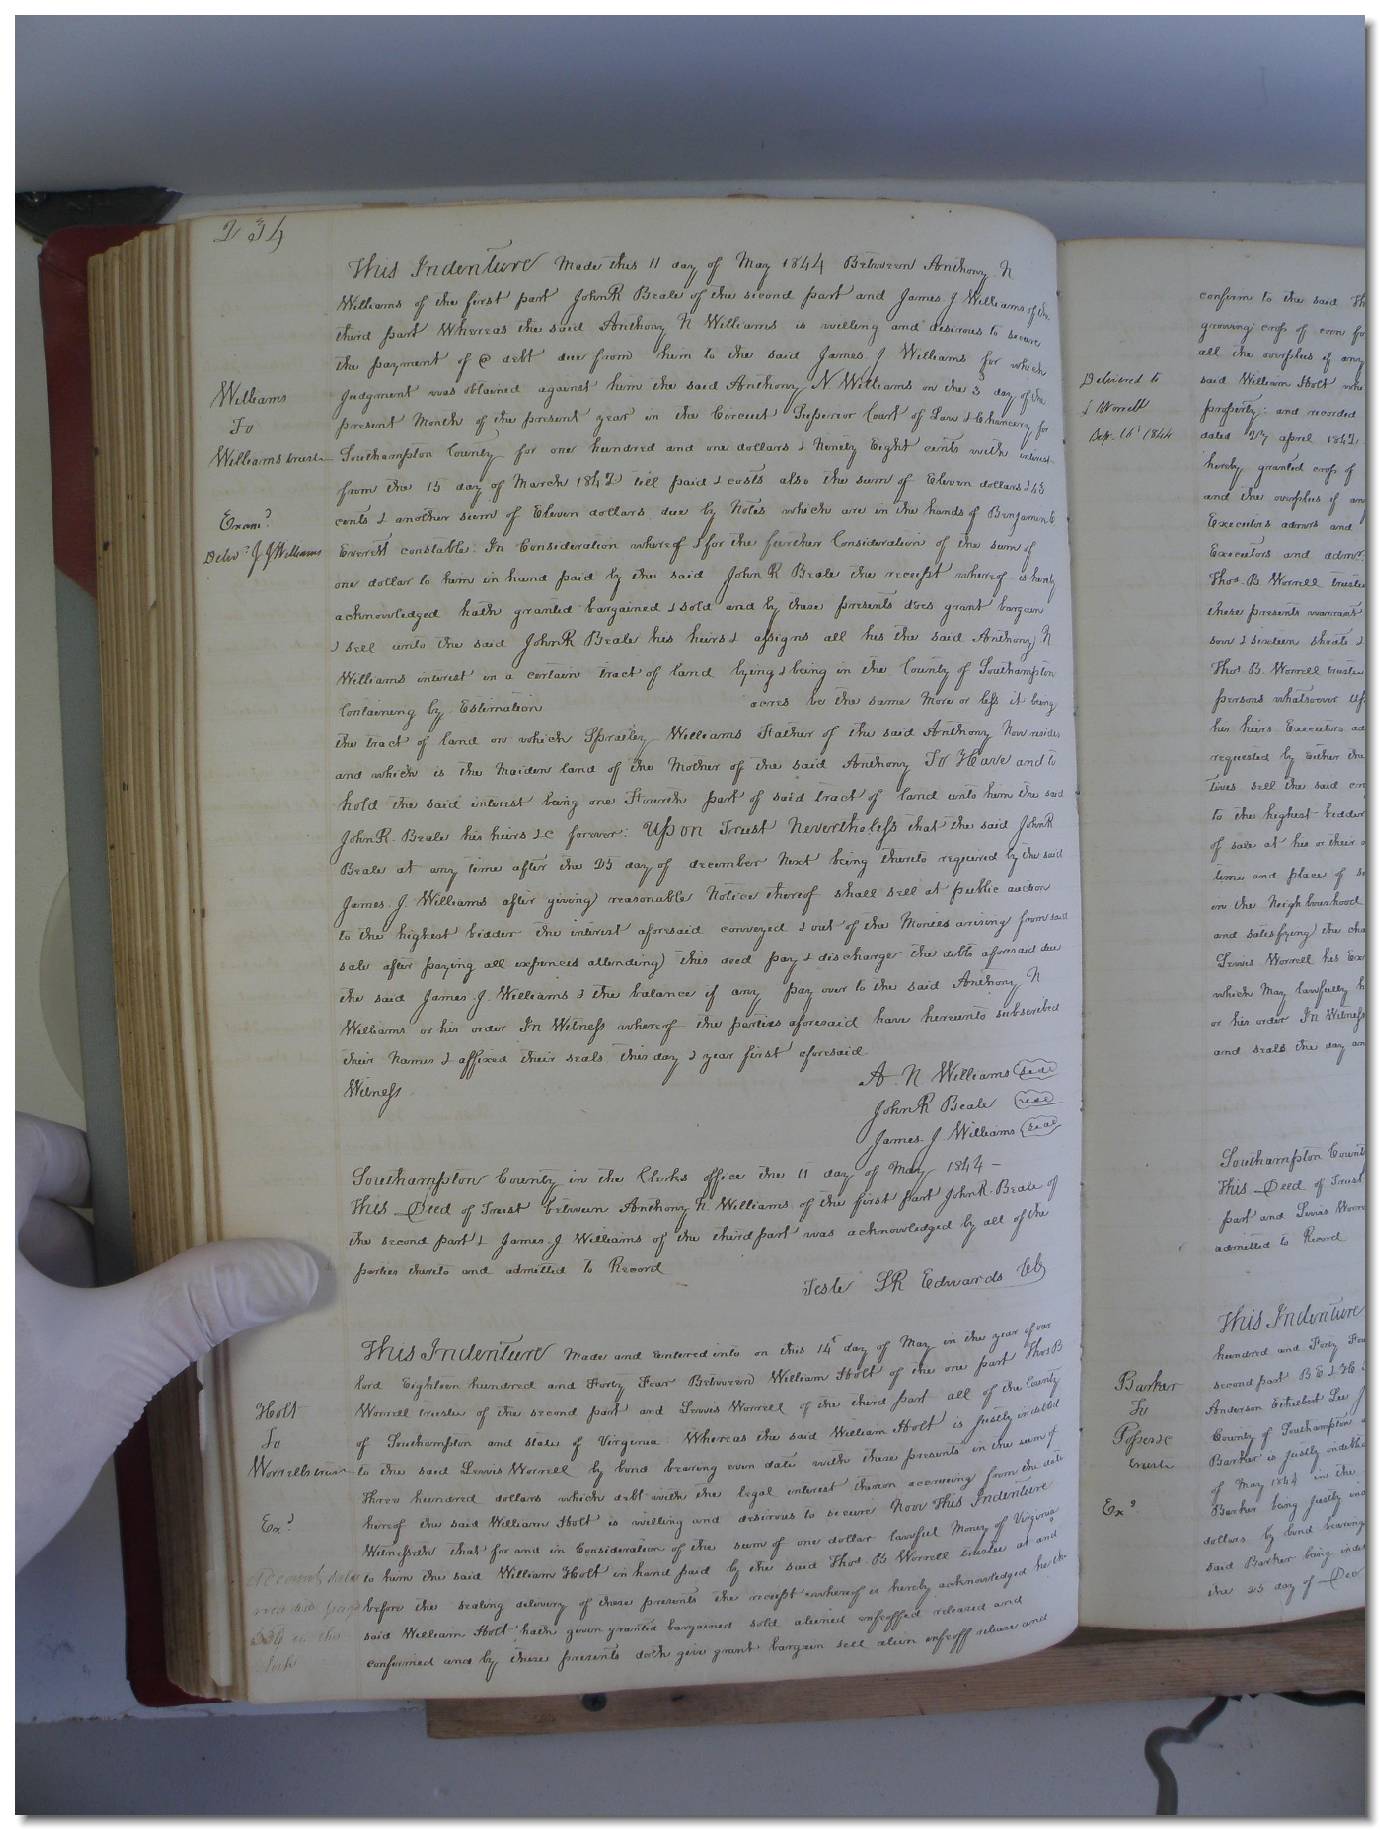 234
This Indenture Made this 11 day of May 1844 Between Anthony N
Williams of the first part John R Beale of the second part and James J Williams of the
third part Whereas the said Anthony N Williams is willing and desirous to secure
the payment of @ debt due from him to the said James J Williams for which
Williams
To
Williams trust
Exam?
Deliv? J J Williams
Judgment was obtained against him the said Anthony N Williams on the 3 day of the
present Month of the present year in the Circuit Superior Court of Law & Chancery for
Southampton County for one hundred and one dollars & Ninety Eight cents with interest
from the 15 day of March 1842 till paid & costs also the sum of Eleven dollars & 45
cents & another sum of Eleven dollars due by Notes which are in the hands of Benjamin
Everett constable. In Consideration whereof & for the further Consideration of the sum of
one dollar to him in hand paid by the said John R Beale the receipt whereof is hereby
acknowledged hath granted bargained & sold and by these presents does grant bargain
& sell unto the said John R Beale his heirs & assigns all his the said Anthony N
Williams interest in a certain tract of land lying & being in the County of Southampton
Containing by Estimation acres be the same More or less it being
the tract of land on which Spratley Williams Father of the said Anthony Now resides
and which is the Maiden land of the Mother of the said Anthony To Have and to
hold the said interest being one Fourth part of said tract of land unto him the said
John R. Beale his heirs &c forever: Upon Trust Nevertheless that the said John R
Beale at any time after the 25 day of december Next being thereto required by the said
James. J. Williams after giving reasonable Notice thereof shall sell at public auction
to the highest bidder the interest aforesaid conveyed & out of the Monies arising from said
sale after paying all expences attending this deed pay & discharge the debts aforesaid due
the said James. J. Williams & the balance if any pay over to the said Anthony N
Williams or his order In Witness whereof the parties aforesaid have hereunto subscribed
their Names & affixed their seals this day & year first aforesaid
Witness
A. N Williams seal
John R Beale seal
James. J. Williams seal
Southampton County in the Clerks office the 11 day of May 1844 –
This Deed of Trust between Anthony N. Williams of the first part John R. Beale of
the second part & James. J Williams of the third part was acknowledged by all of the
parties thereto and admitted to Record
Teste L R Edwards Clk
This Indenture Made and Entered into on this 14t day of May in the year of our
lord Eighteen hundred and Forty Four Between William Holt of the one part Thos B
Holt
To
Worrells trust
Ex?
Worrell trustee of the second part and Lewis Worrell of the third part all of the County
of Southampton and state of Virginia. Whereas the said William Holt is justly indebted
to the said Lewis Worrell by bond bearing even date with these presents in the sum of
Three hundred dollars which debt with the legal interest thereon accrueing from the date
hereof the said William Holt is willing and desirous to secure Now This Indenture
Witnesseth that for and in Consideration of the sum of one dollar lawful Money of Virginia
to him the said William Holt in hand paid by the said Thos B Worrell trustee at and
before the sealing delivery of these presents the receipt whereof is hereby acknowledged he the
said William Holt hath given granted bargained sold aliened enfeoffed released and
confirmed and by these presents doth give grant bargain sell alien enfeoff release and
Delivered to
L Worrell
1844
confirm to the said Th
growing crop of corn fo
all the overplus if any
said William Holt whe
property: and recorded
dated 27 april 1842
hereby granted crop of
and the overplus if an
Executors admrs and
Executors and admr
Thos. B. Worrell trustee
these presents warrant
sow & sixteen shoats &
Thos B. Worrell trustee
persons whatsoever Up
his heirs Executors ad
requested by Either the
tives sell the said cro
to the highest bidder
of sale at his or their
time and place of s
in the Neighbourhood
and satisfying the cha
Lewis Worrell his Ex
which May lawfully h
or his order In Witness
and seals the day an
Southampton Count
This Deed of Trust
part and Lewis Worr
admitted to Record
This Indenture
hundred and Forty Fou
Barker
To
trust
Ex?
second part B E & H
Anderson Ethelbert Lee J
County of Southampton
Barker is justly indebte
of May 1844 in the
Barker being justly ind
dollars by bond bearing
said Barker being inde
the 25 day of Dec